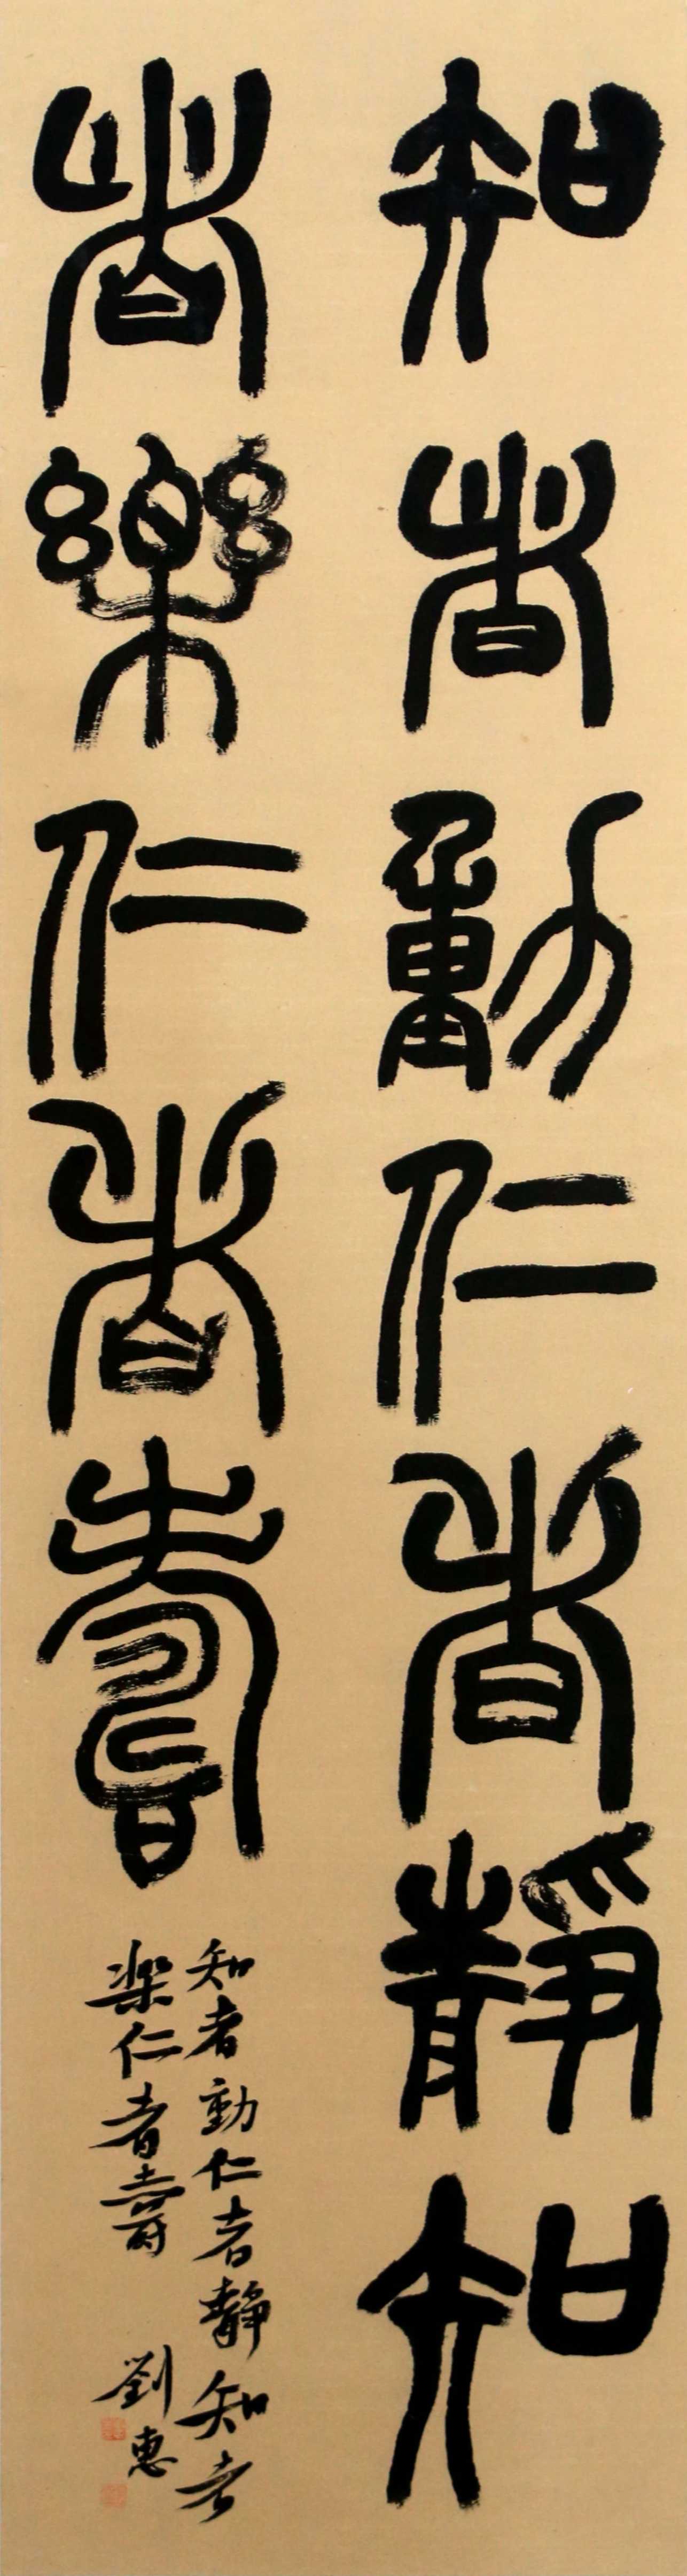 知者動仁者靜知
者樂仁者壽
知者動仁者靜知者
樂仁者壽
劉惠